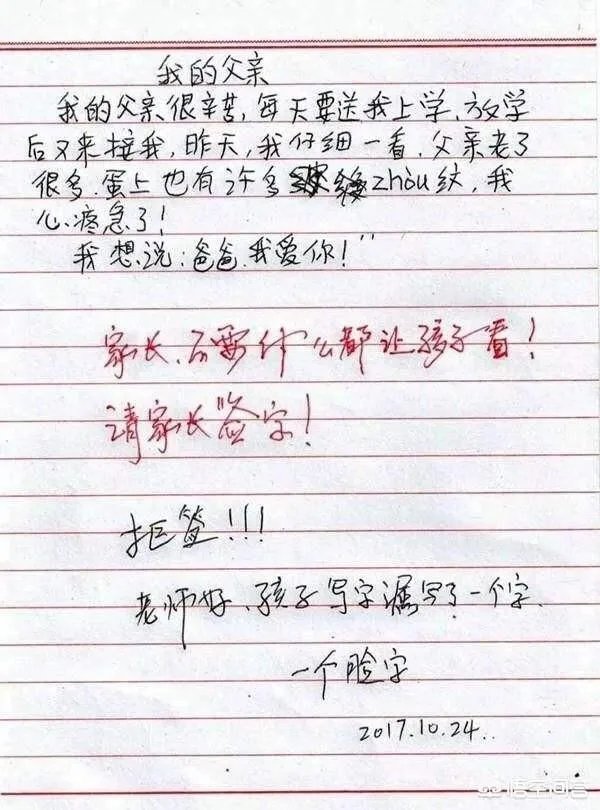 我的父亲
我的父亲很辛苦,每天要送我上学.放学
后又来接我,昨天,我仔细一看.父亲老了
很多.蛋上也有许多zhòu纹,我
心疼急了!
我想说:爸爸.我爱你!"
家长.不要什么都让孩子看!
请家长签字!
拒签!!!
老师好、孩子写字漏写了一个字.
一个脸字
2017.10.24..
悟空问答